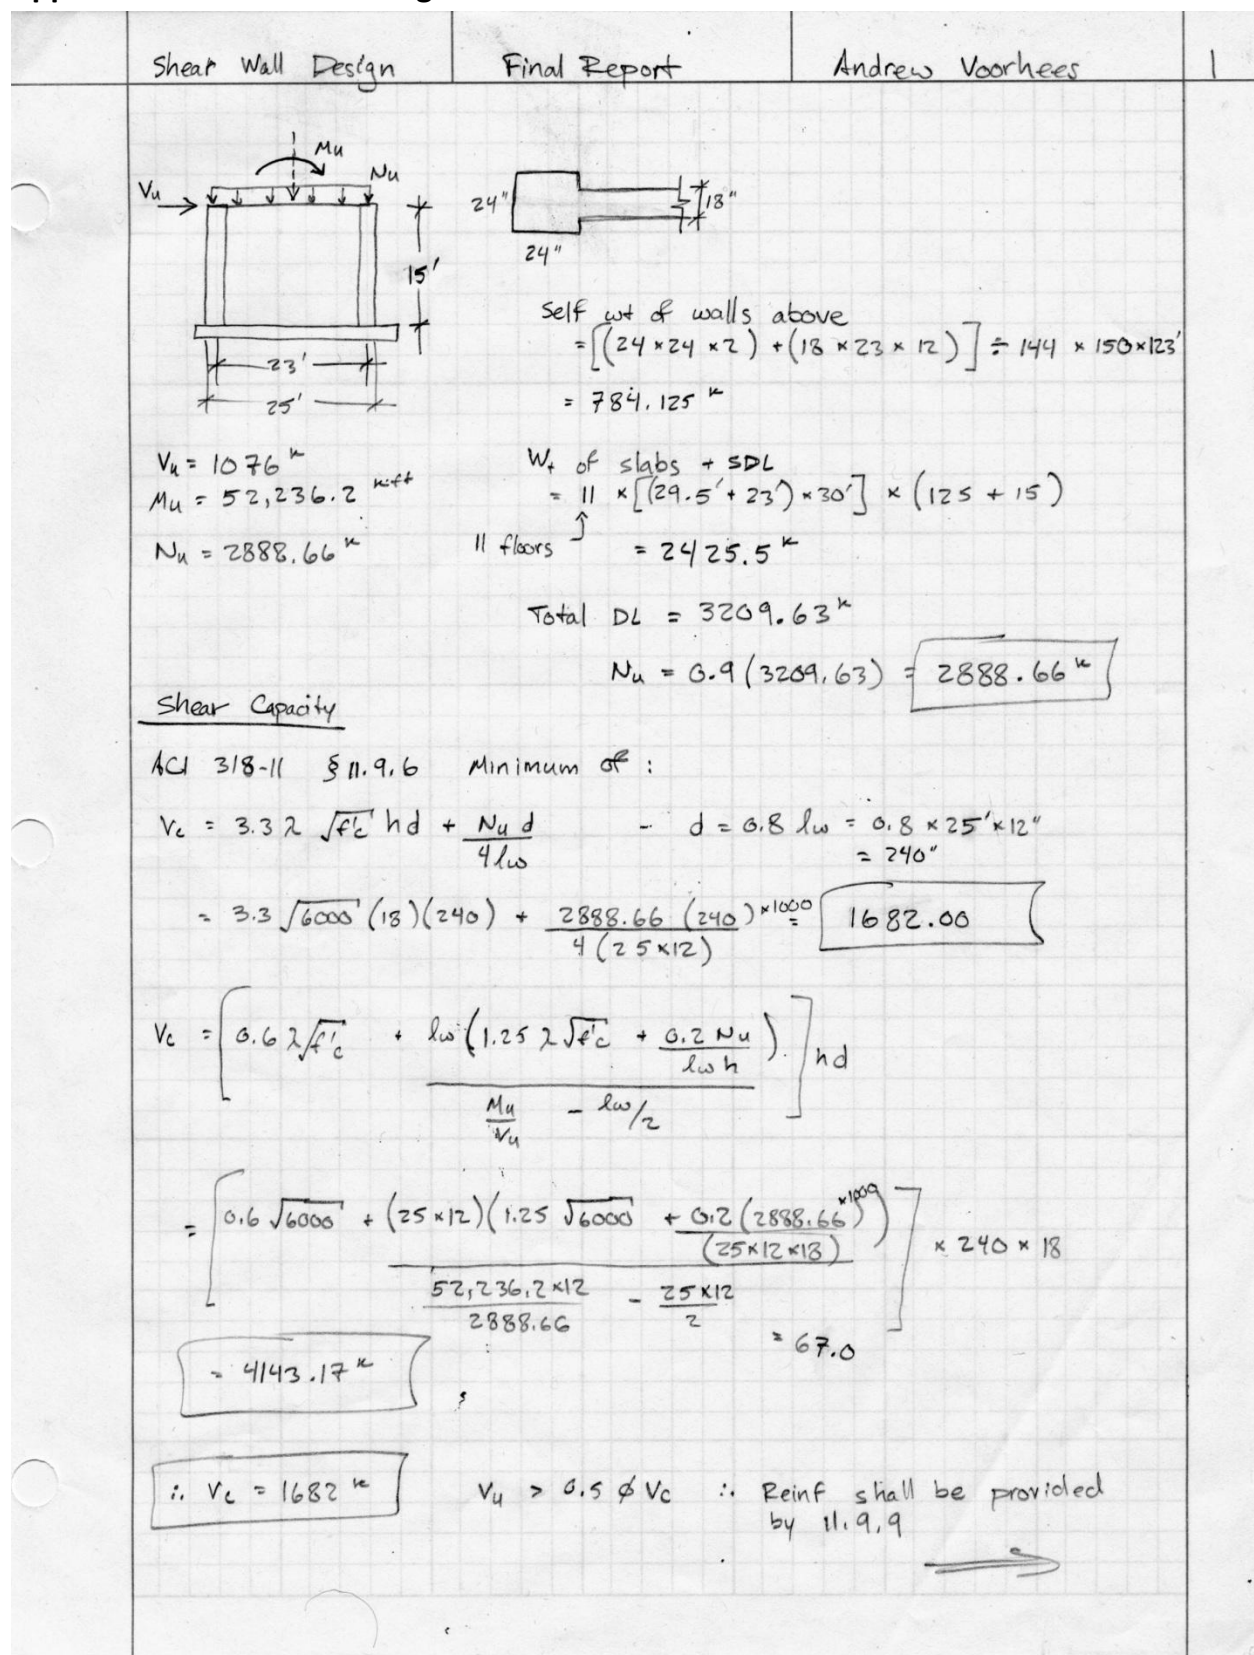 Shear Wall Design
Final Report
Andrew Voorhees
1
Mu
Nu
Vu
15'
23'
25'
24"
18"
24"
Self wt of walls above
= [(24 × 24 × 2) + (18 × 23 × 12)] ÷ 144 × 150 × 123'
= 784.125 k
Vu = 1076 k
Mu = 52,236.2 k·ft
Nu = 2888.66 k
Wt of slabs + SDL
= 11 × [(29.5' + 23') × 30'] × (125 + 15)
11 floors
= 2425.5 k
Total DL = 3209.63 k
Nu = 0.9 (3209.63) = 2888.66 k
Shear Capacity
ACI 318-11 § 11.9.6 Minimum of :
Vc = 3.3 λ √f'c hd + Nu d / 4 lw - d = 0.8 lw = 0.8 × 25' × 12"
= 240"
= 3.3 √6000 (18)(240) + 2888.66 (240) ×1000 / 4 (25 × 12) = 1682.00
Vc = [0.6 λ √f'c + lw (1.25 λ √f'c + 0.2 Nu / lw h) / (Mu / Vu - lw/2)] hd
= [0.6 √6000 + (25 × 12)(1.25 √6000 + 0.2 (2888.66 ×1000) / (25 × 12 × 18)) / (52,236.2 × 12 / 2888.66 - 25 × 12 / 2)] × 240 × 18
= 67.0
= 4143.17 k
∴ Vc = 1682 k
Vu > 0.5 ϕ Vc ∴ Reinf shall be provided
by 11.9.9